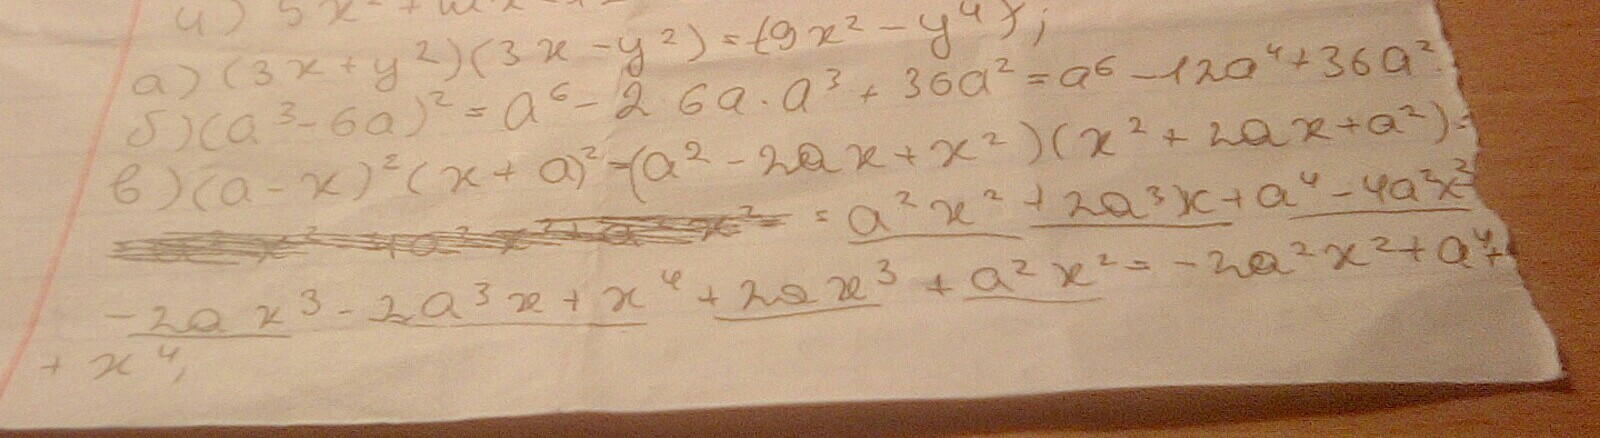 4) 5x² + 
а) (3x + y²)(3x - y²) = (9x² - y⁴);
б) (a³ - 6a)² = a⁶ - 2 6a · a³ + 36a² = a⁶ - 12a⁴ + 36a²
в) (a - x)² (x + a)² = (a² - 2ax + x²)(x² + 2ax + a²) =
= a²x² + 2a³x + a⁴ - 4a²x²
- 2ax³ - 2a³x + x⁴ + 2ax³ + a²x² = - 2a²x² + a⁴ +
+ x⁴,